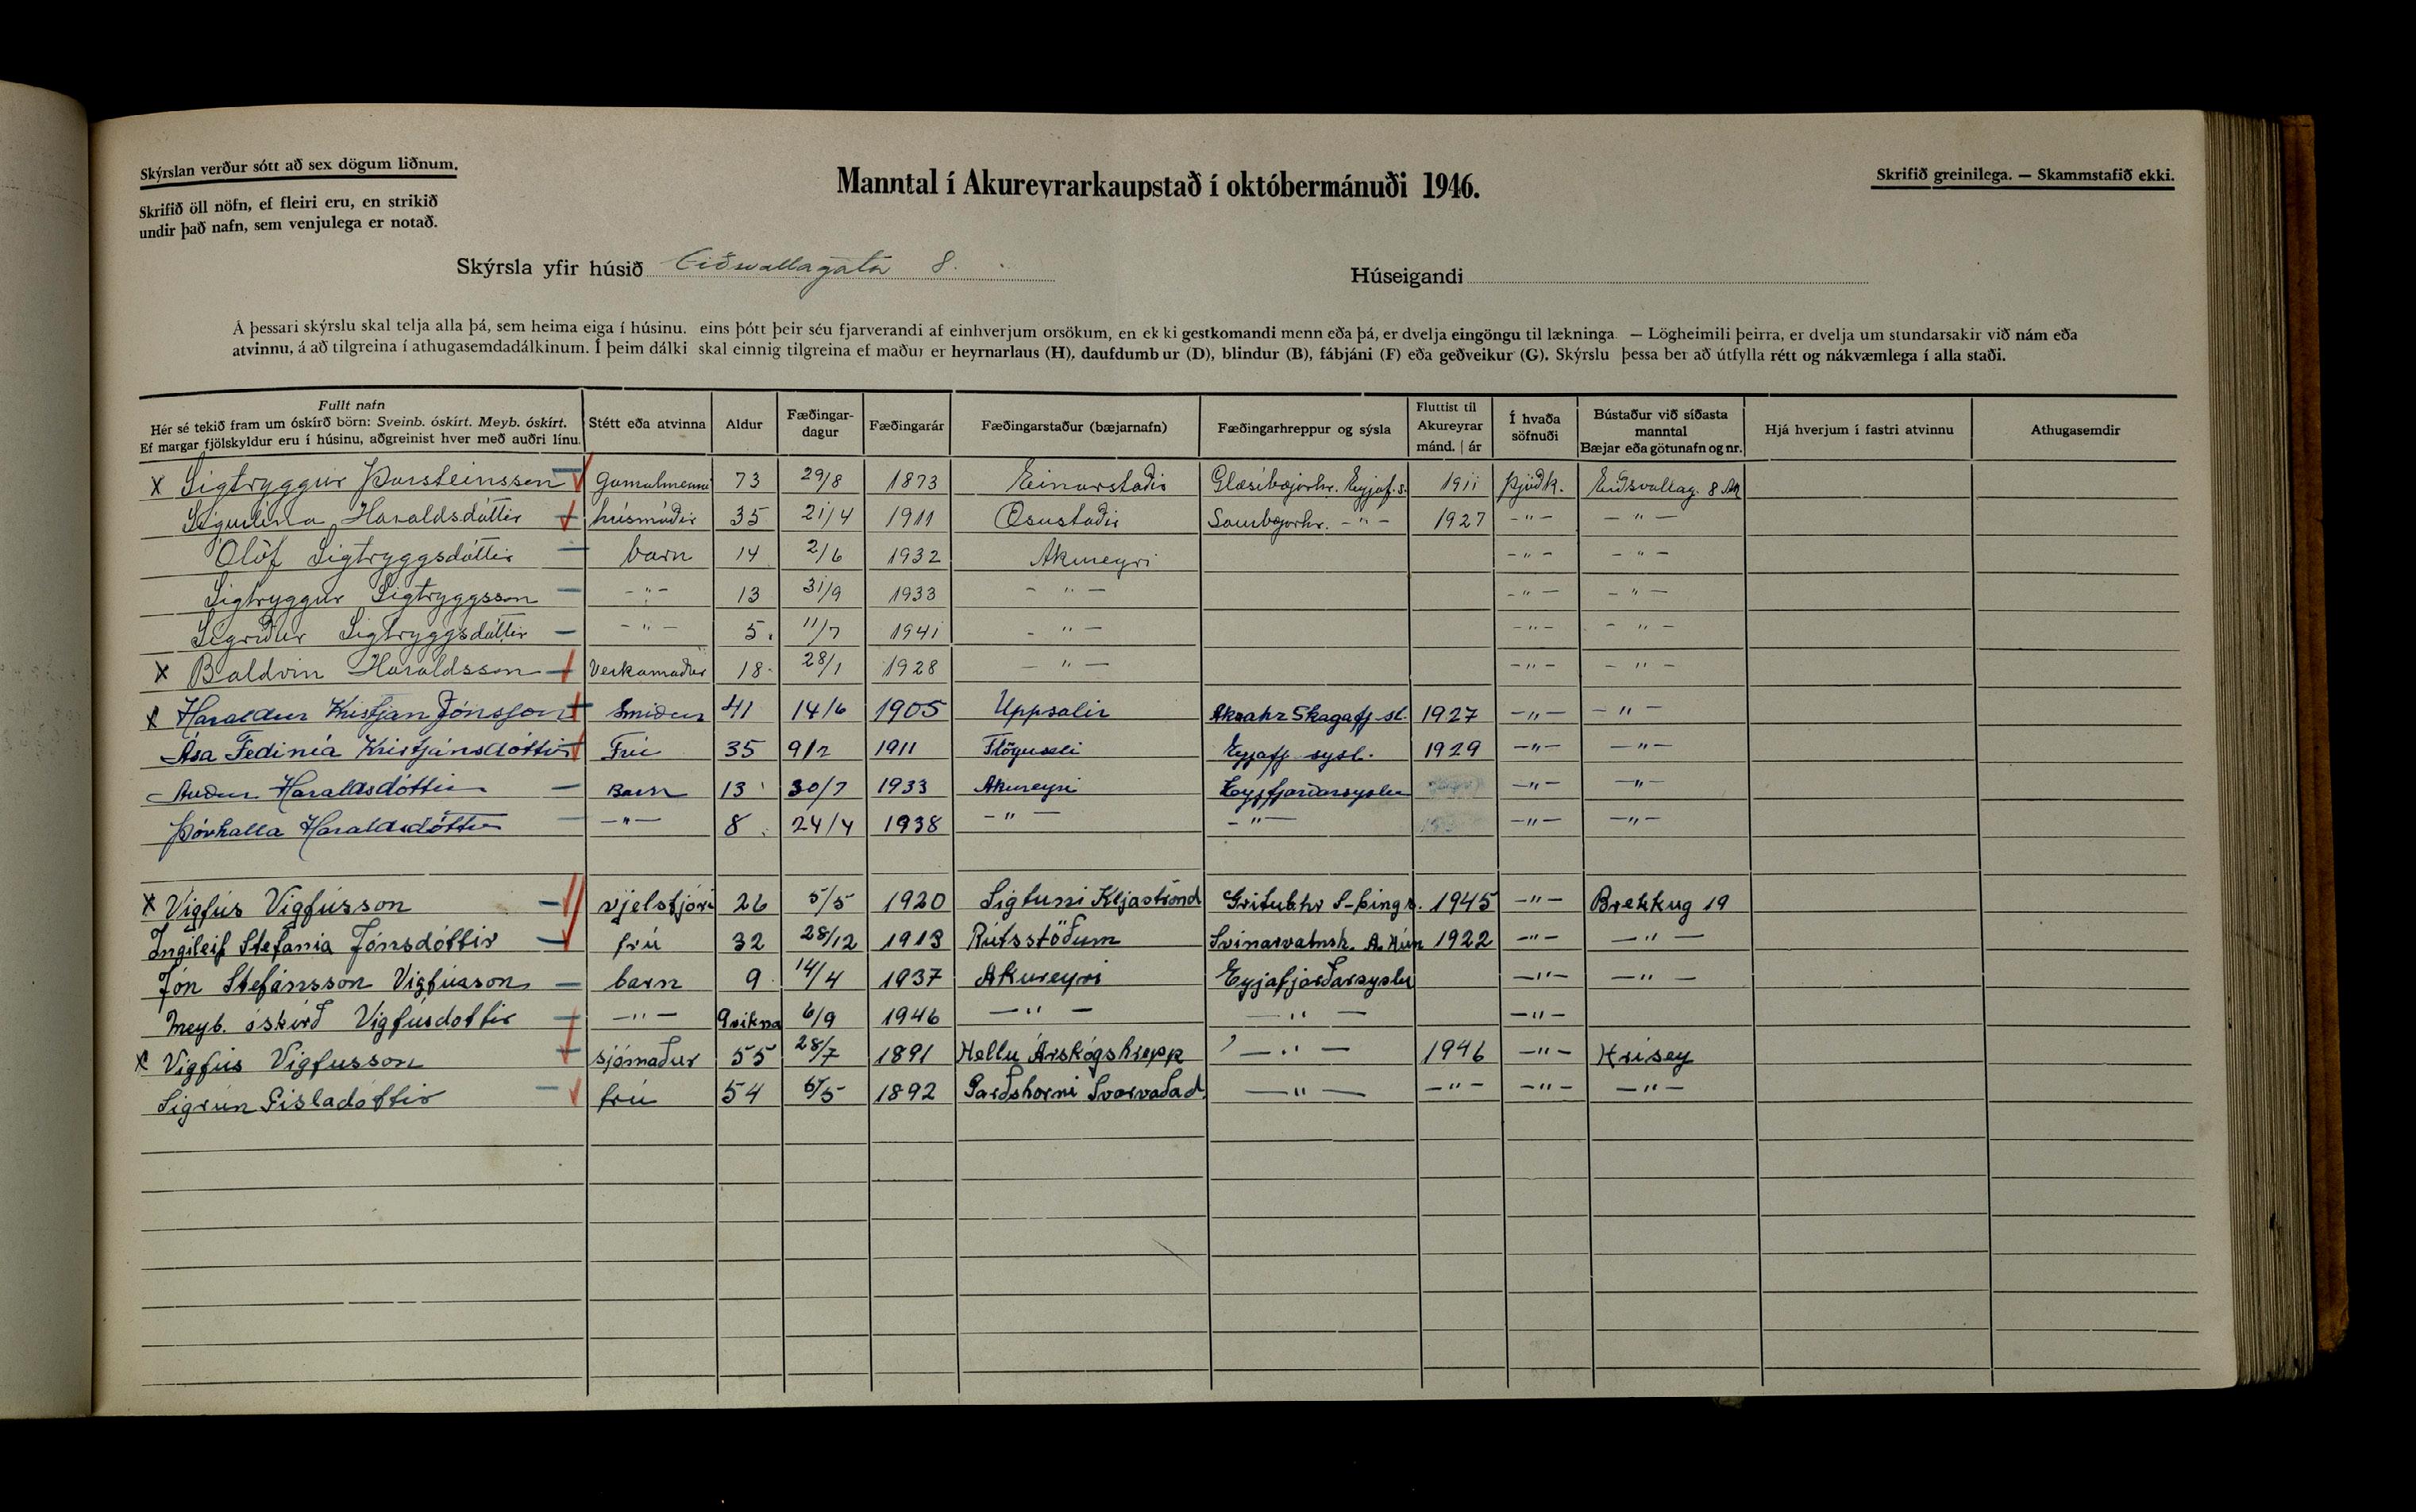 Skýrslan verður sótt að sex dögum liðnum.
Skrifið öll nöfn, ef fleiri eru, en strikið
undir það nafn, sem venjulega er notað.
Manntal í Akureyrarkaupstað í októbermánuði 1946.
Skrifið greinilega. — Skammstafið ekki.
Skýrsla yfir húsið Eiðsvallagata 8.
Húseigandi
Á þessari skýrslu skal telja alla þá, sem heima eiga í húsinu. eins þótt þeir séu fjarverandi af einhverjum orsökum, en ekki gestkomandi menn eða þá, er dvelja eingöngu til lækninga. — Lögheimili þeirra, er dvelja um stundarsakir við nám eða
atvinnu, á að tilgreina í athugasemdadálkinum. Í þeim dálki skal einnig tilgreina ef maður er heyrnarlaus (H), daufdumbur (D), blindur (B), fábjáni (F) eða geðveikur (G). Skýrslu þessa ber að útfylla rétt og nákvæmlega í alla staði.
Fullt nafn
Hér sé tekið fram um óskírð börn: Sveinb. óskírt. Meyb. óskírt.
Ef margar fjölskyldur eru í húsinu, aðgreinist hver með auðri línu.
Stétt eða atvinna
Aldur
Fæðingar-
dagur
Fæðingarár
Fæðingarstaður (bæjarnafn)
Fæðingarhreppur og sýsla
Fluttist til
Akureyrar
mánd. | ár
Í hvaða
söfnuði
Bústaður við síðasta
manntal
Bæjar eða götunafn og nr.
Hjá hverjum í fastri atvinnu
Athugasemdir
x Sigtryggur Þorsteinsson Gamalmenni 73 29/8 1873 Einarstaðir Glæsibæjarhr. Eyjaf.s. 1911 Þjóðk. Eiðsvallag. 8 Ak
Sigurlína Haraldsdóttir húsmóðir 35 21/4 1911 Ösustaðir Saurbæjarhr. -"- 1927 -"- -"-
Ólöf Sigtryggsdóttir barn 14 2/6 1932 Akureyri -"- -"-
Sigtryggur Sigtryggsson -"- 13 31/9 1933 -"- -"- -"-
Sigríður Sigtryggsdóttir -"- 5. 11/7 1941 -"- -"- -"-
x Baldvin Haraldsson Verkamaður 18 28/1 1928 -"- -"- -"-
x Haraldur Kristján Jónsson Smiður 41 14/6 1905 Uppsalir Akrahr Skagafj. sl. 1927 -"- -"-
Ása Fedinía Kristjánsdóttir Frú 35 9/2 1911 Flöguseli Eyjafj sysl. 1929 -"- -"-
Auður Haraldsdóttir Barn 13 30/7 1933 Akureyri Eyjfjarðarsyslu -"- -"-
Þórhalla Haraldsdóttir -"- 8 24/4 1938 -"- -"- -"- -"-
x Vigfús Vigfússon vjelstjóri 26 5/5 1920 Sigtuni Kljaströnd Grítubhr S-Þing s. 1945 -"- Brekkug 19
Ingileif Stefanía Jónsdóttir frú 32 28/12 1913 Rútsstöðum Svínarvatnsh. A. Hún 1922 -"- -"-
Jón Stefánsson Vigfússon barn 9 14/4 1937 Akureyri Eyjafjarðarsyslu -"- -"-
Meyb. óskírð Vigfúsdóttir -"- 9 vikna 6/9 1946 -"- -"- -"-
x Vigfús Vigfusson sjómaður 55 28/7 1891 Hellu Árskógshrepp -"- 1946 -"- Hrísey
Sigrún Gísladóttir frú 54 6/5 1892 Garðshorni Svarvaðad. -"- -"- -"- -"-